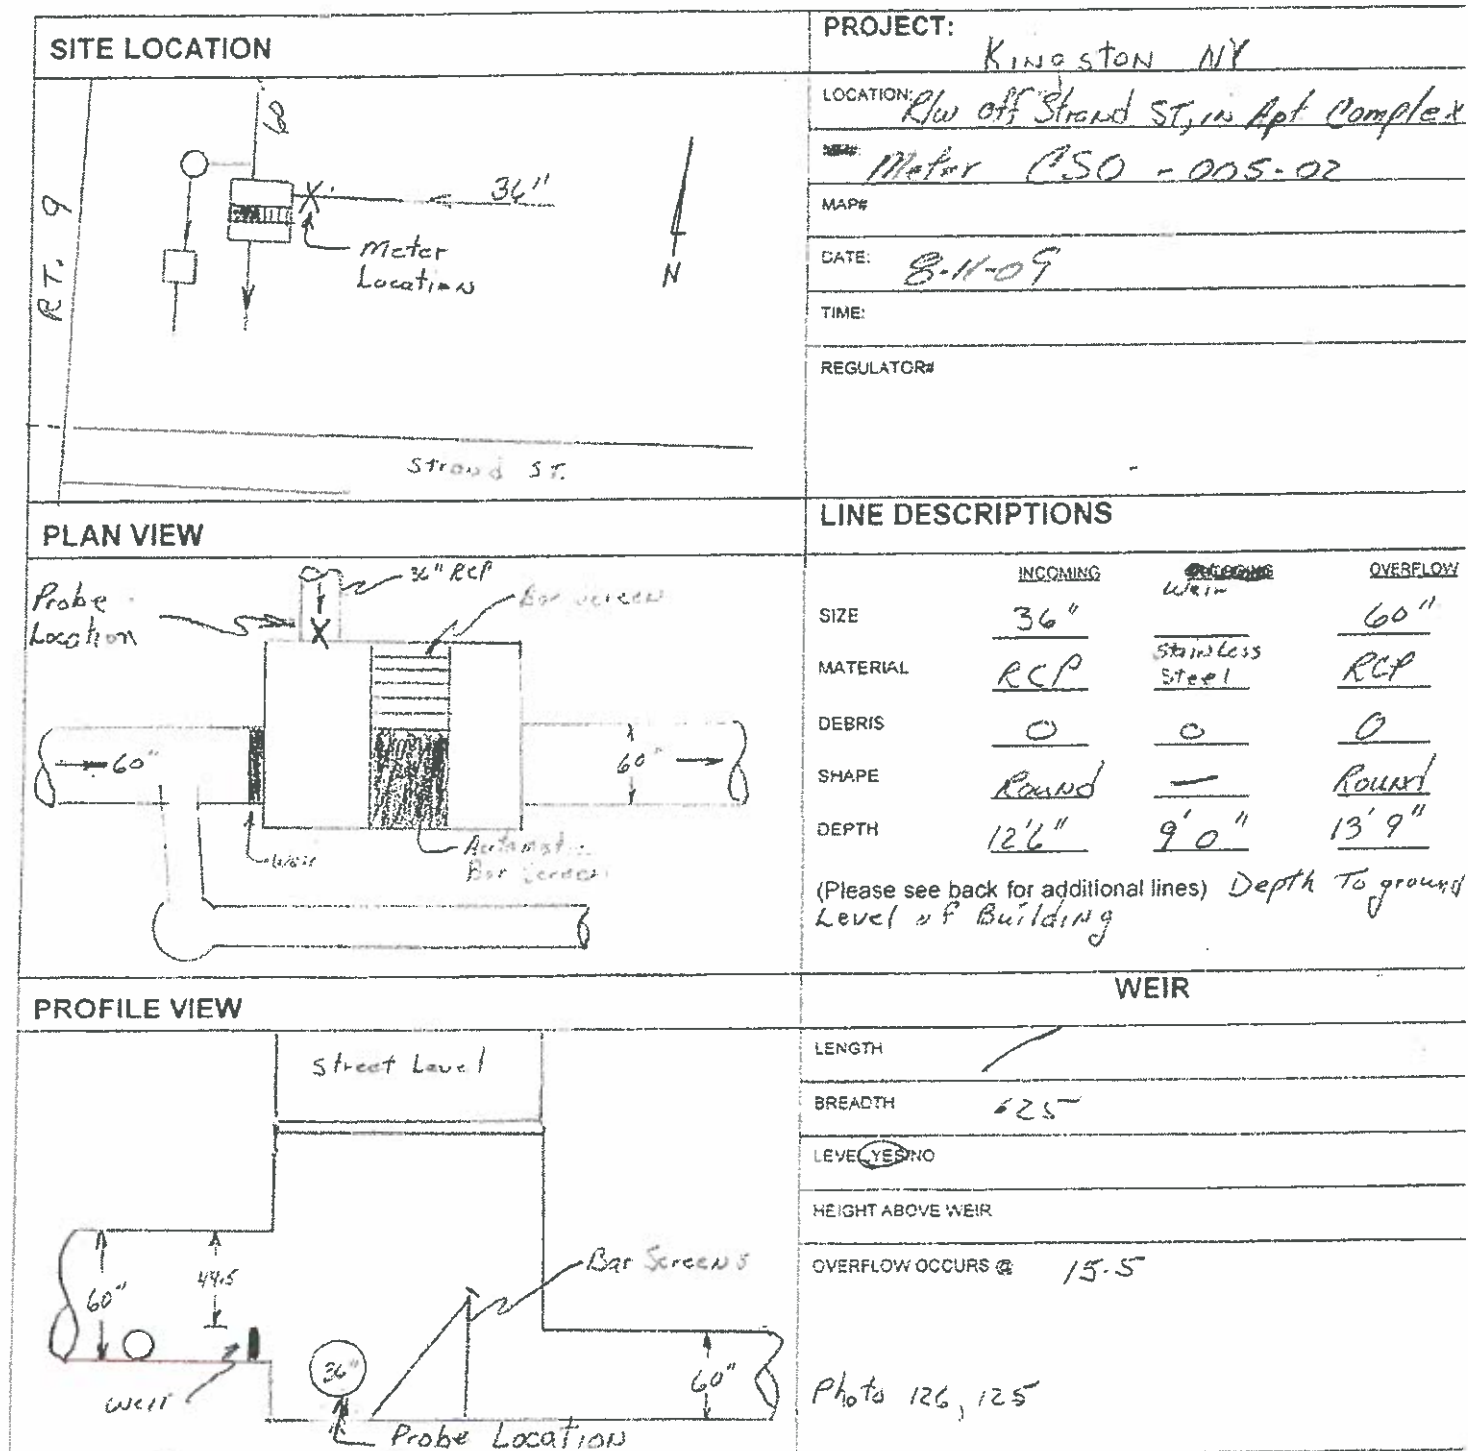 SITE LOCATION
60
36"
RT. 9
Meter
Location
N
Strand ST.
PROJECT:
Kingston NY
LOCATION: R/W off Strand ST, in Apt Complex
Meter CSO - 005-02
MAP#
DATE: 8-11-09
TIME:
REGULATOR#
PLAN VIEW
36" RCP
Probe
Location
Bar Screen
60"
60"
Weir
Automatic
Bar Screen
LINE DESCRIPTIONS
INCOMING Weir OVERFLOW
SIZE 36" 60"
MATERIAL RCP Stainless Steel RCP
DEBRIS 0 0 0
SHAPE Round — Round
DEPTH 12'6" 9'0" 13'9"
(Please see back for additional lines) Depth To ground
Level of Building
PROFILE VIEW
Street Level
60"
44.5
Bar Screens
36"
60"
weir
Probe Location
WEIR
LENGTH
BREADTH .25
LEVEL YES/NO
HEIGHT ABOVE WEIR
OVERFLOW OCCURS @ 15.5
Photo 126, 125